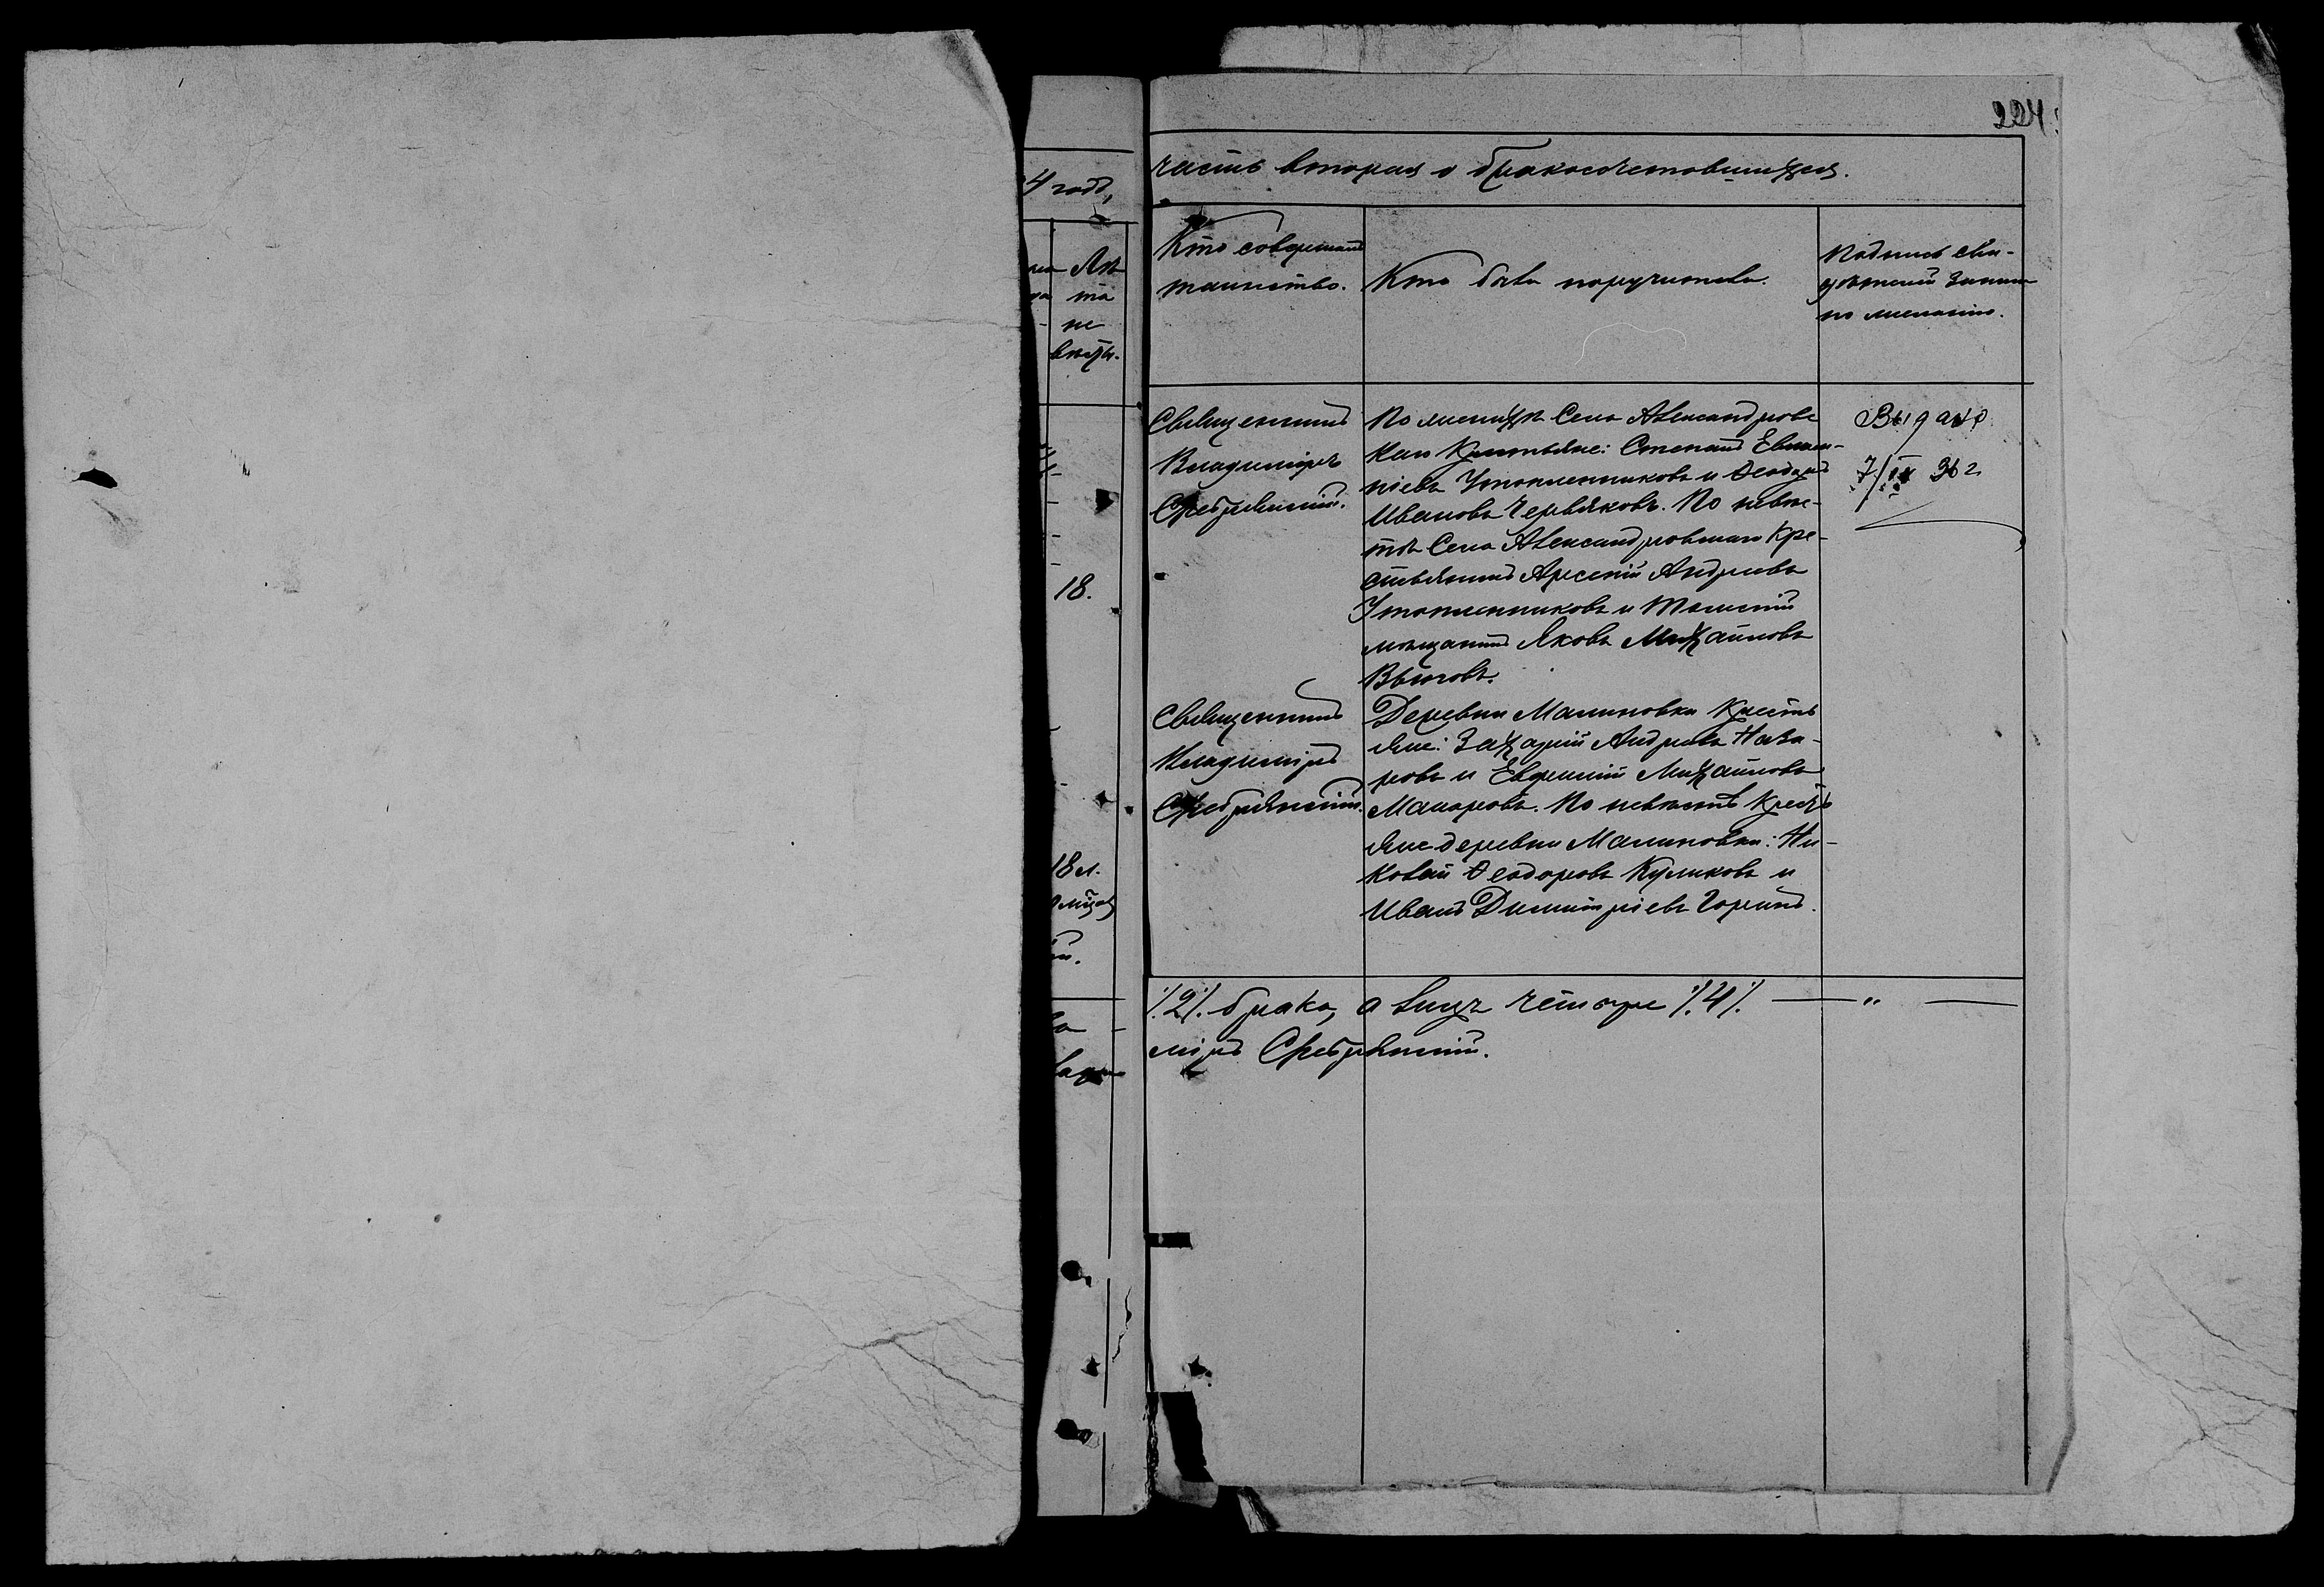 224
4 года,
часть вторая о бракосочетавшихся.
Лѣ
та
не
вѣсты.
Кто совершалъ
таинство.
Кто были поручители.
Подпись сви-
дѣтелей записи
по желанію.
18.
18 л.
Священникъ
Владиміръ
Сребрянскій.
По женихѣ Села Александровс
каго Крестьяне: Степанъ Евлам-
піевъ Утопленниковъ и Ѳеодоръ
Ивановъ Червяковъ. По невѣс-
тѣ Села Александровскаго Кре-
стьянинъ Арсеній Андреевъ
Утопленниковъ и Томскій
мѣщанинъ Яковъ Михайловъ
Вьюговъ.
Выдано
7/IX 36 г
Священникъ
Владиміръ
Сребрянскій.
Деревни Малиновки Кресть
яне: Захарій Андреевъ Наза-
ровъ и Евдокимъ Михайловъ
Макаровъ. По невѣстѣ Кресть
яне деревни Малиновки: Ни-
колай Ѳеодоровъ Куликовъ и
Иванъ Димитріевъ Горинъ.
/.2/. брака, а лицъ четыре /.4/. — " —
міръ Сребрянскій.